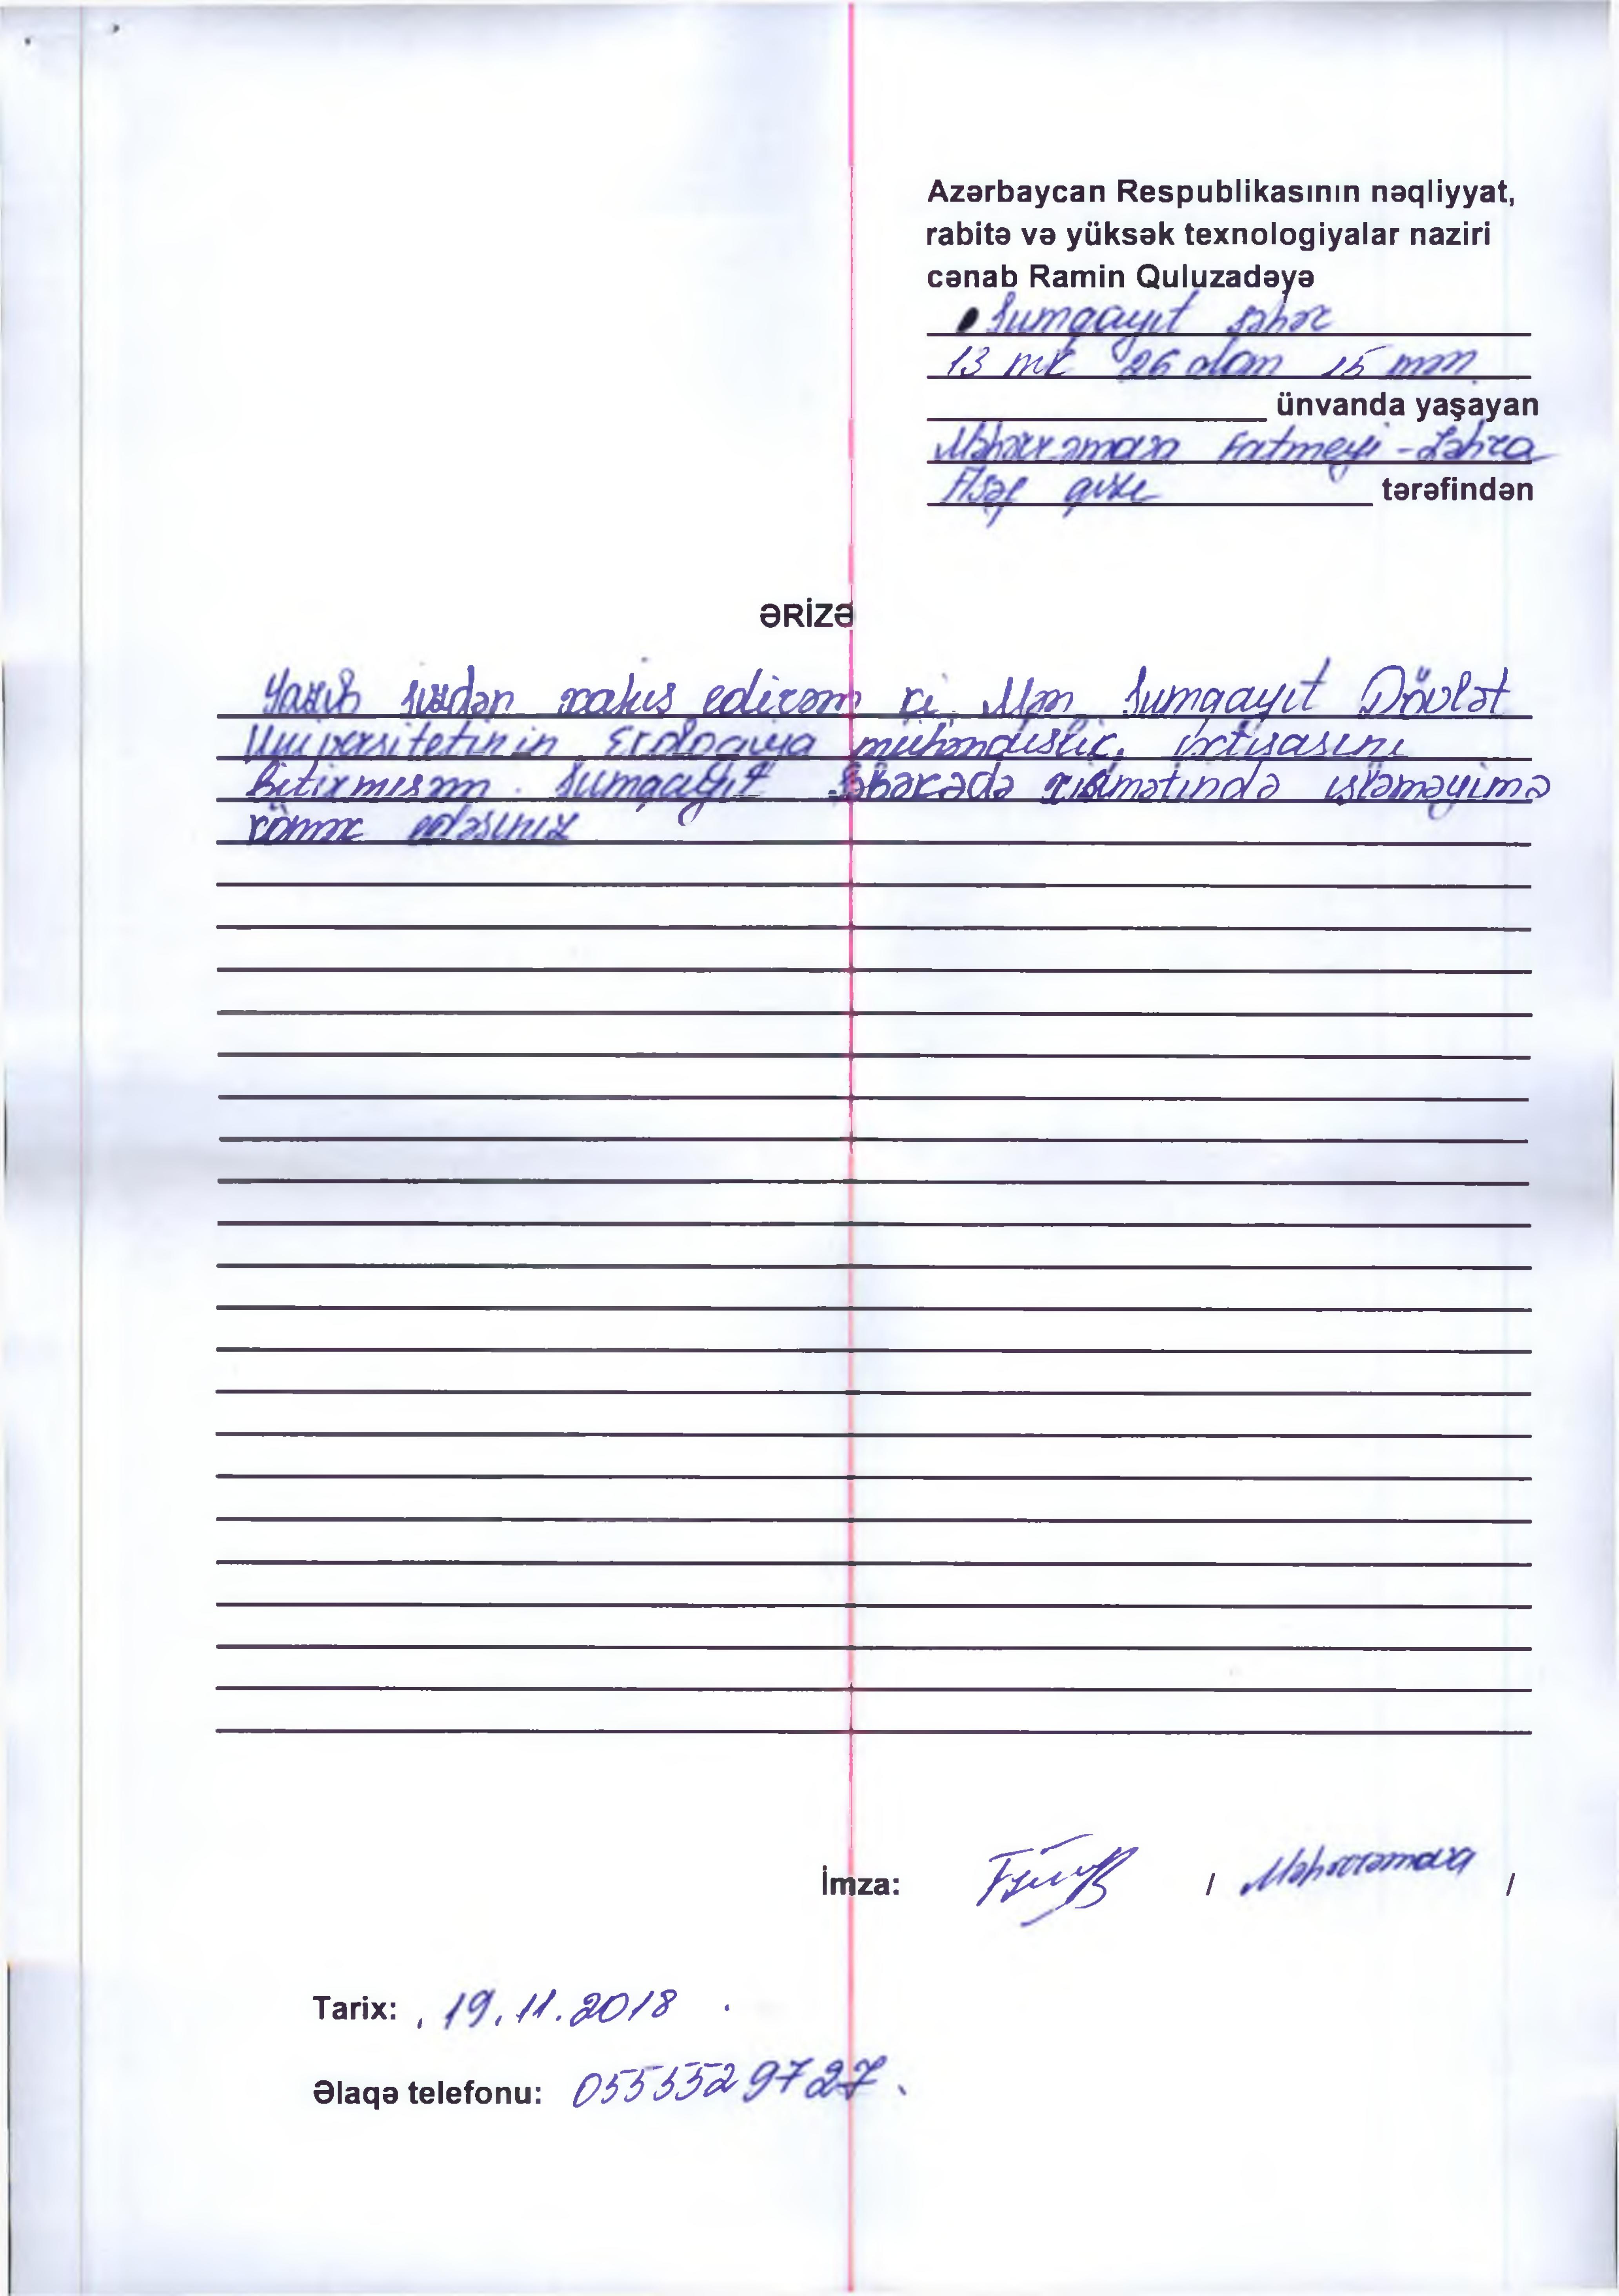 Azərbaycan Respublikasının nəqliyyat,
rabitə və yüksək texnologiyalar naziri
cənab Ramin Quluzadəyə
Sumqayıt şəhər
13 mk 26 dlan 15 mm
ünvanda yaşayan
Məhərrəmova Fatmeyi-Zəhra
Asəf qızı tərəfindən
ƏRİZƏ
Yazıb sizdən xahiş edirəm ki, Mən Sumqayıt Dövlət
Universitetinin Ekologiya mühəndislik, ixtisasını
bitirmişəm. Sumqayıt şəbəkədə xidmətində işləməyimə
köməк edəsiniz
İmza: / Məhərrəmova /
Tarix: 19.11.2018
Əlaqə telefonu: 0555529727